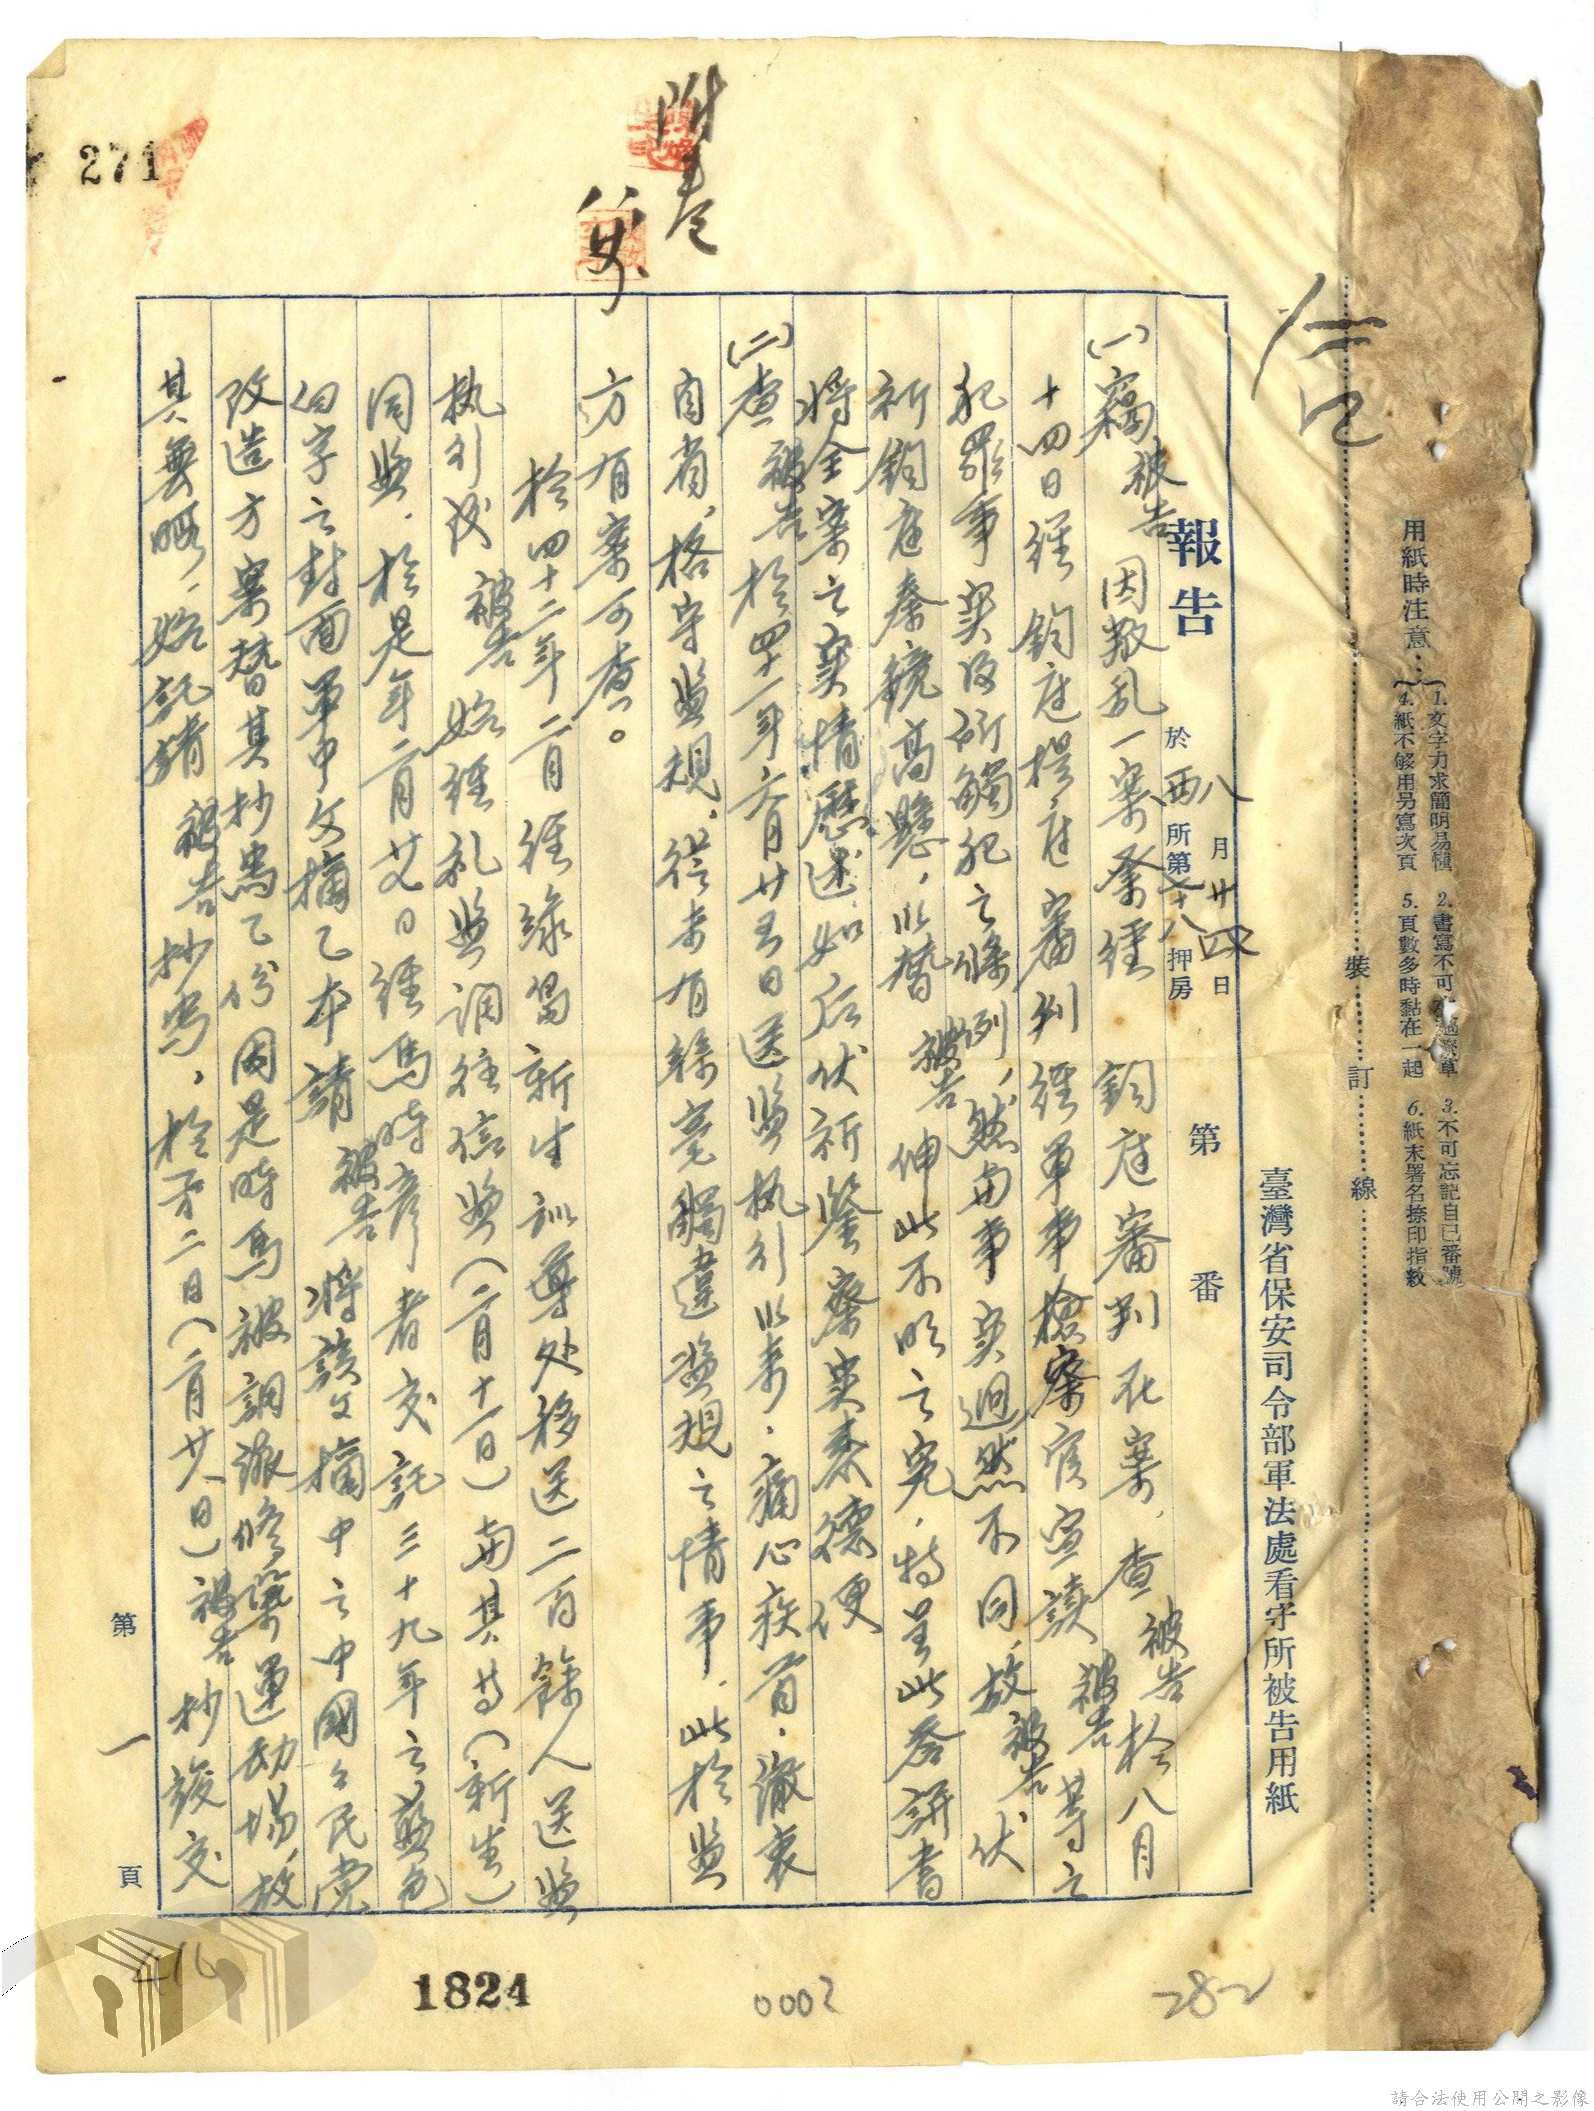 用紙時注意：
1.文字力求簡明易懂 2.書寫不可過潦草 3.不可忘記自己番號
4.紙不够用另寫次頁 5.頁數多時黏在一起 6.紙末署名捺印指紋
裝 訂 線
臺灣省保安司令部軍法處看守所被告用紙
報告
八月廿四日
於西所第十八押房
第 番
(一)竊被告因叛乱一案，奉經 鈞庭審判在案，查被告於八月
十四日經 鈞庭提庭審判經軍事檢察官宣讀被告等之
犯罪事实及所觸犯之條例，然与事实迥然不同，故被告伏
祈鈞庭秦鏡高懸，以替被告伸此不明之冤，特呈此答辯書
將全案之实情歷述如后伏祈鑒察实奉德便
(二)查被告於四十一年六月廿五日送监執行以來，痛心疾首，澈衷
自省，格守监規，從未有絲毫觸違监規之情事，此於监
方有案可查。
於四十二年二月經綠島新生訓導处移送二百餘人送监
執行後 被告始經礼监調往信监(二月十一日)与其等(新生)
同监，於是年二月廿日經馬時彥者交託三十九年之藍色
白字之封面軍中文摘乙本請被告將該文摘中之中國國民党
改造方案替其抄寫乙份因是時馬被調派修築運動場，故
其無暇，始託請被告抄寫，於第二日(二月廿一日)被告抄後交
第 一 頁
附卷
271
1824
0002
282
416
請合法使用公開之影像